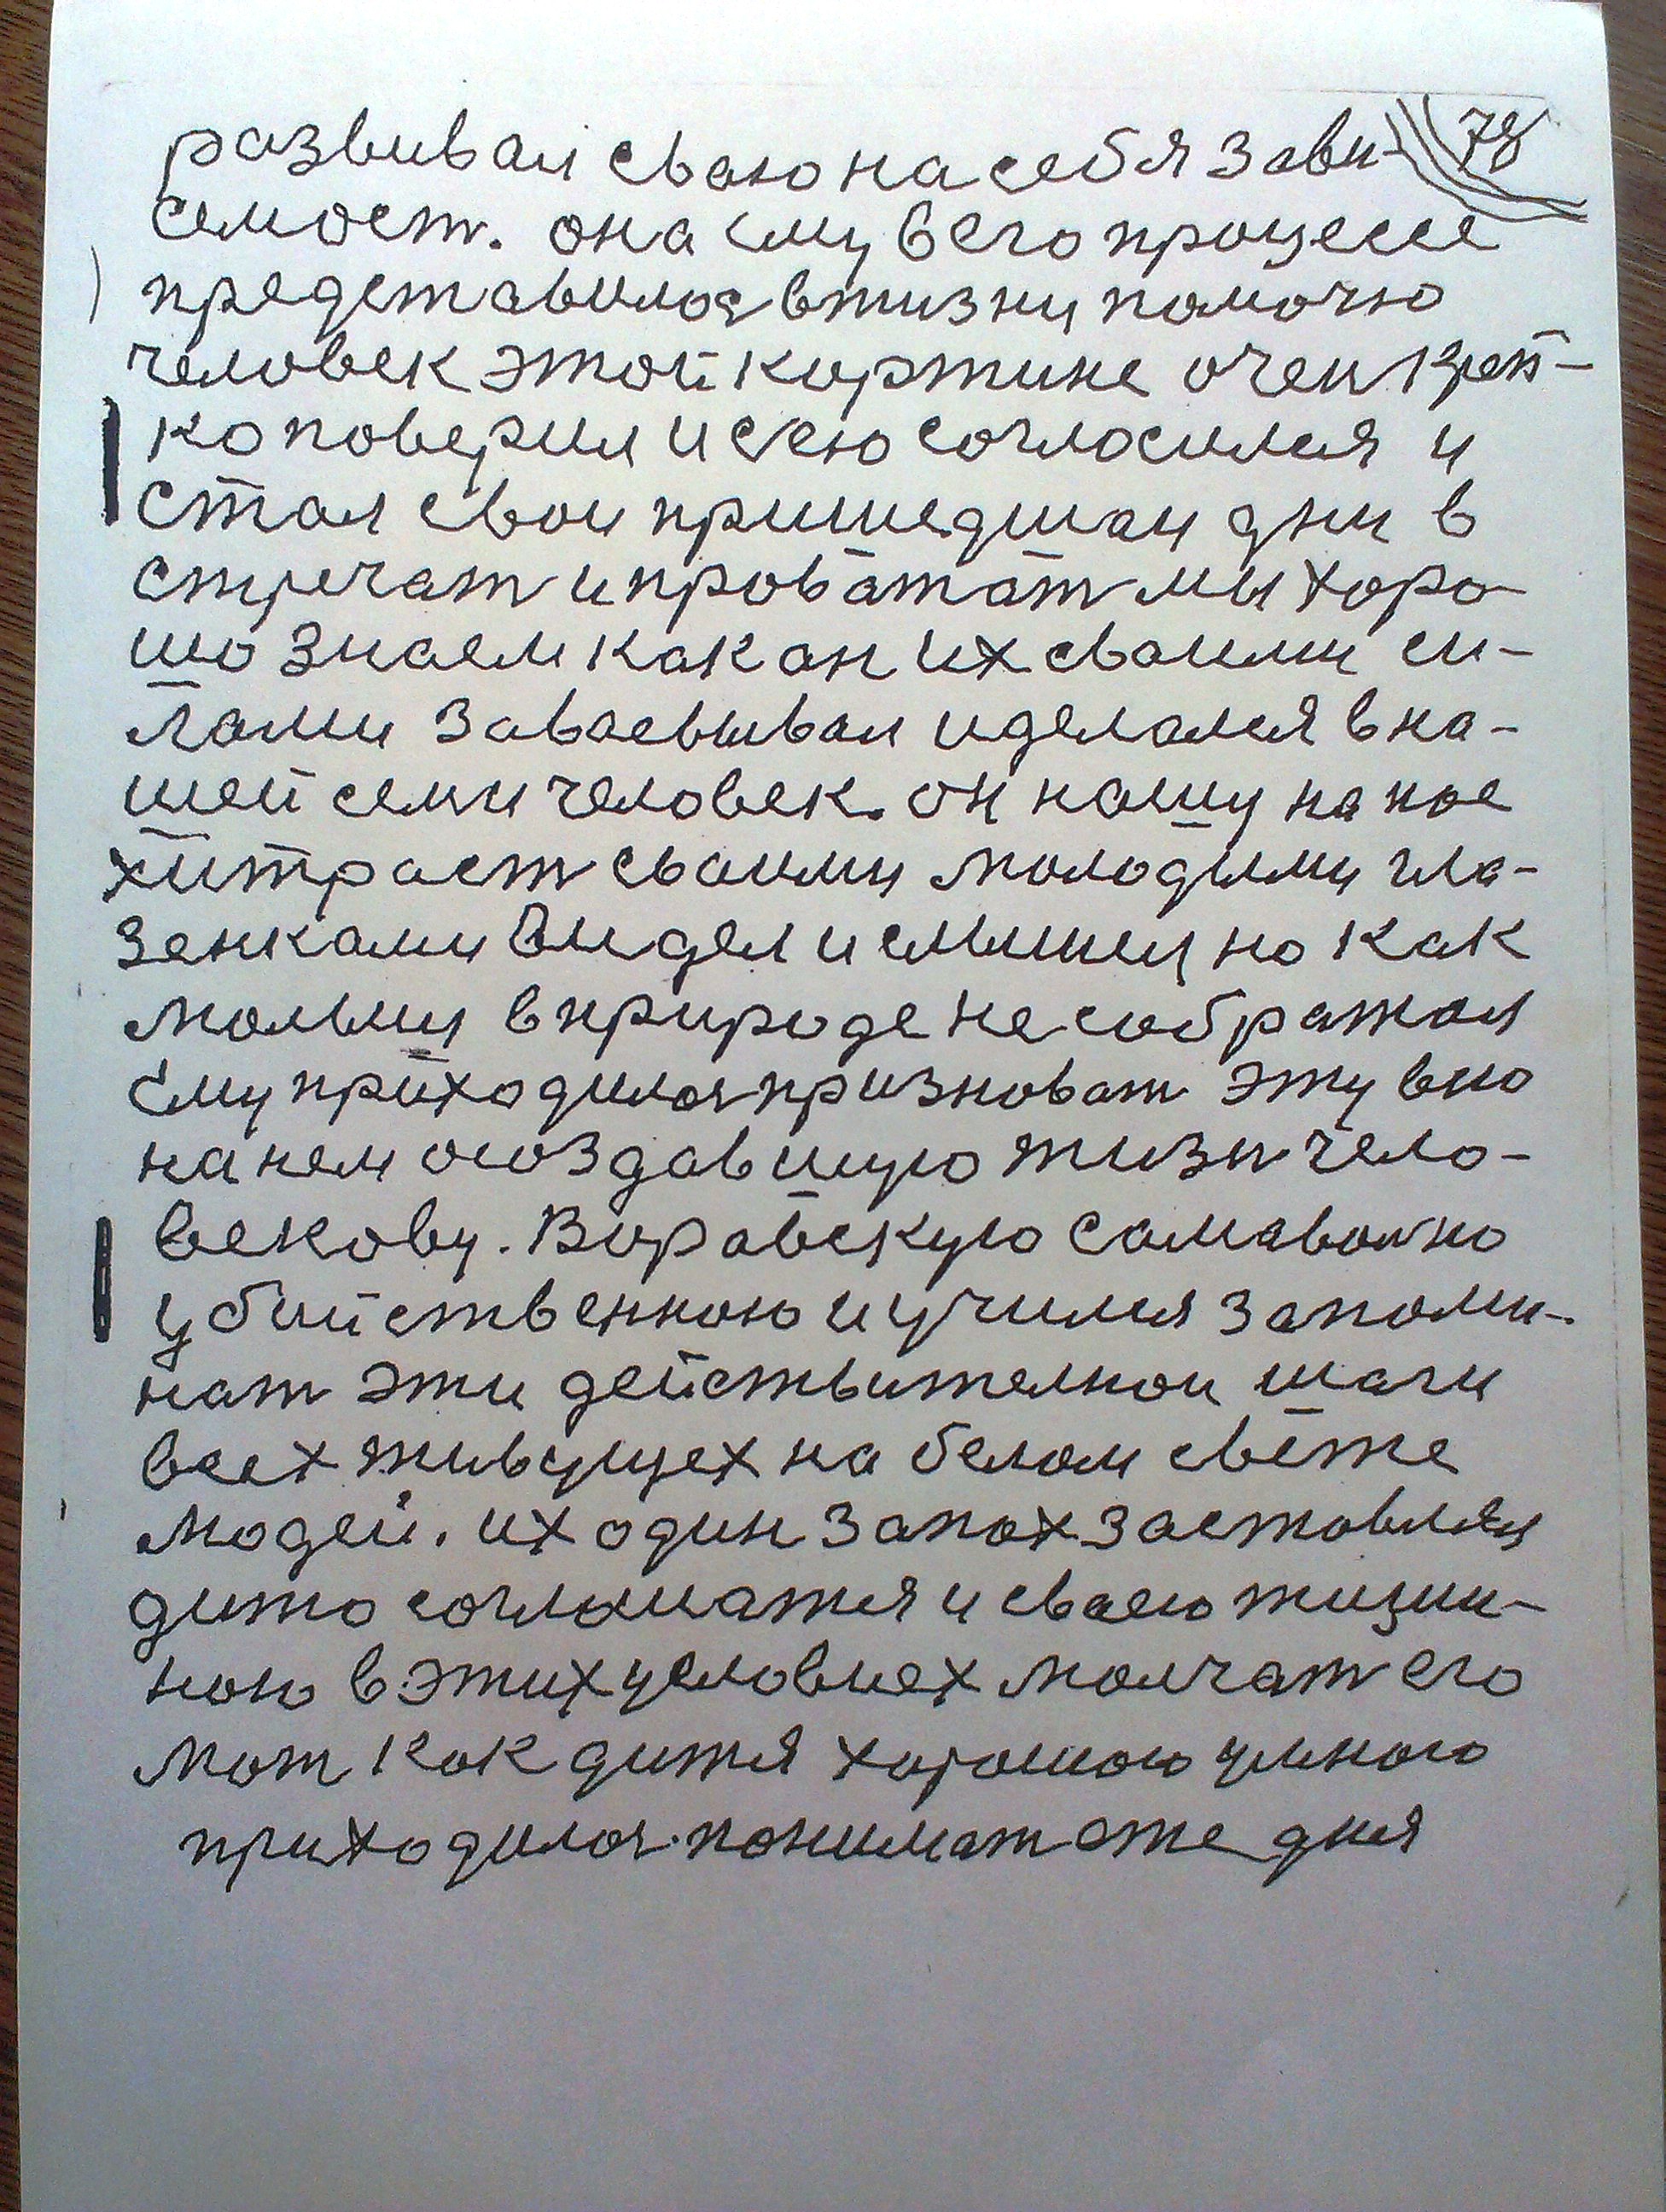 78
развивал сваю на себя зави-
семост. она ему в его процессе
представилося в жизни помочю
человек этой картине очен креп-
ко поверил и с ею согласился и
стал свои пришедшаи дни в
стречат и проважат мы хоро-
шо знаем как он их сваими си-
лами заваевывал и делался в на-
шей семи человек. он нашу на ное
хитраст сваими молодыми гла-
зенками видел и слышел но как
малыш в природе не соображал
ему приходилося признават эту всю
на нем создавшую жизн чело-
векову. Воравскую самавольно
убийственною и учился запоми-
нат эти действителнои шаги
всех живущех на белом свете
людей. их один запах заставлял
дитю соглашатся и сваею жизни-
ною в этих условиех молчат его
мат как дитя хорошою умного
приходилося понимат оте дня